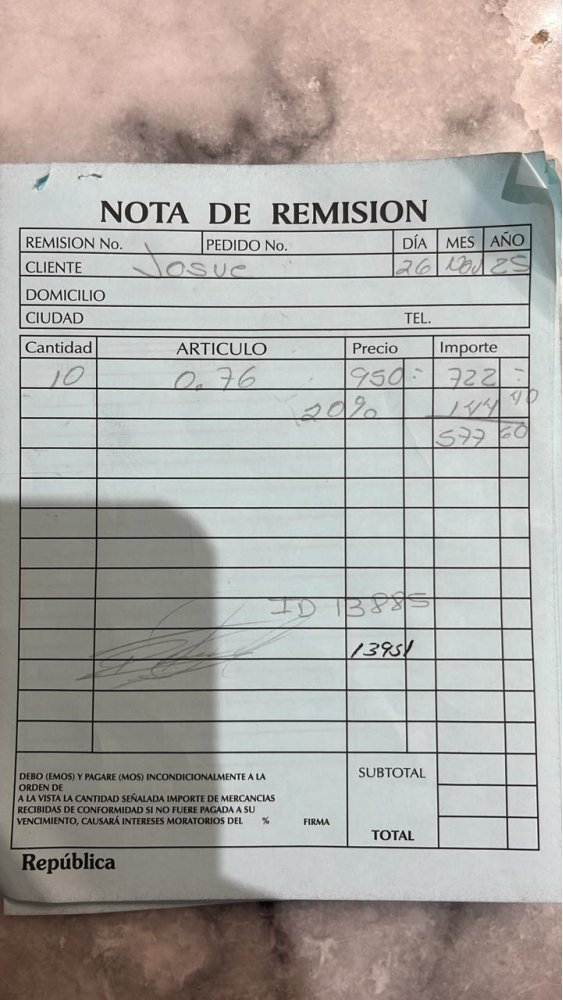 NOTA DE REMISION
REMISION No. PEDIDO No. DÍA MES AÑO
CLIENTE Josue 26 Nov 25
DOMICILIO
CIUDAD TEL.
Cantidad ARTICULO Precio Importe
10 0.76 950 722
20% 144 40
577 60
ID 13885
13951
DEBO (EMOS) Y PAGARE (MOS) INCONDICIONALMENTE A LA
ORDEN DE
A LA VISTA LA CANTIDAD SEÑALADA IMPORTE DE MERCANCIAS
RECIBIDAS DE CONFORMIDAD SI NO FUERE PAGADA A SU
VENCIMIENTO, CAUSARÁ INTERESES MORATORIOS DEL % FIRMA
SUBTOTAL
TOTAL
República